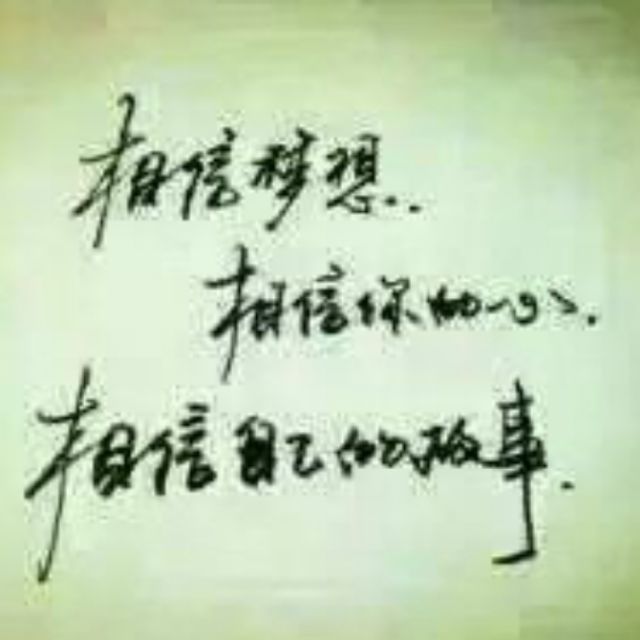 相信梦想..
相信你的心.
相信自己的故事.